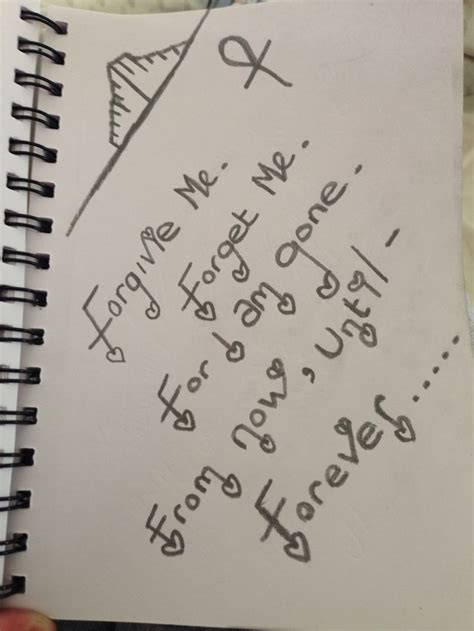 Forgive Me.
Forget Me.
For I am gone.
From now, until
Forever.....